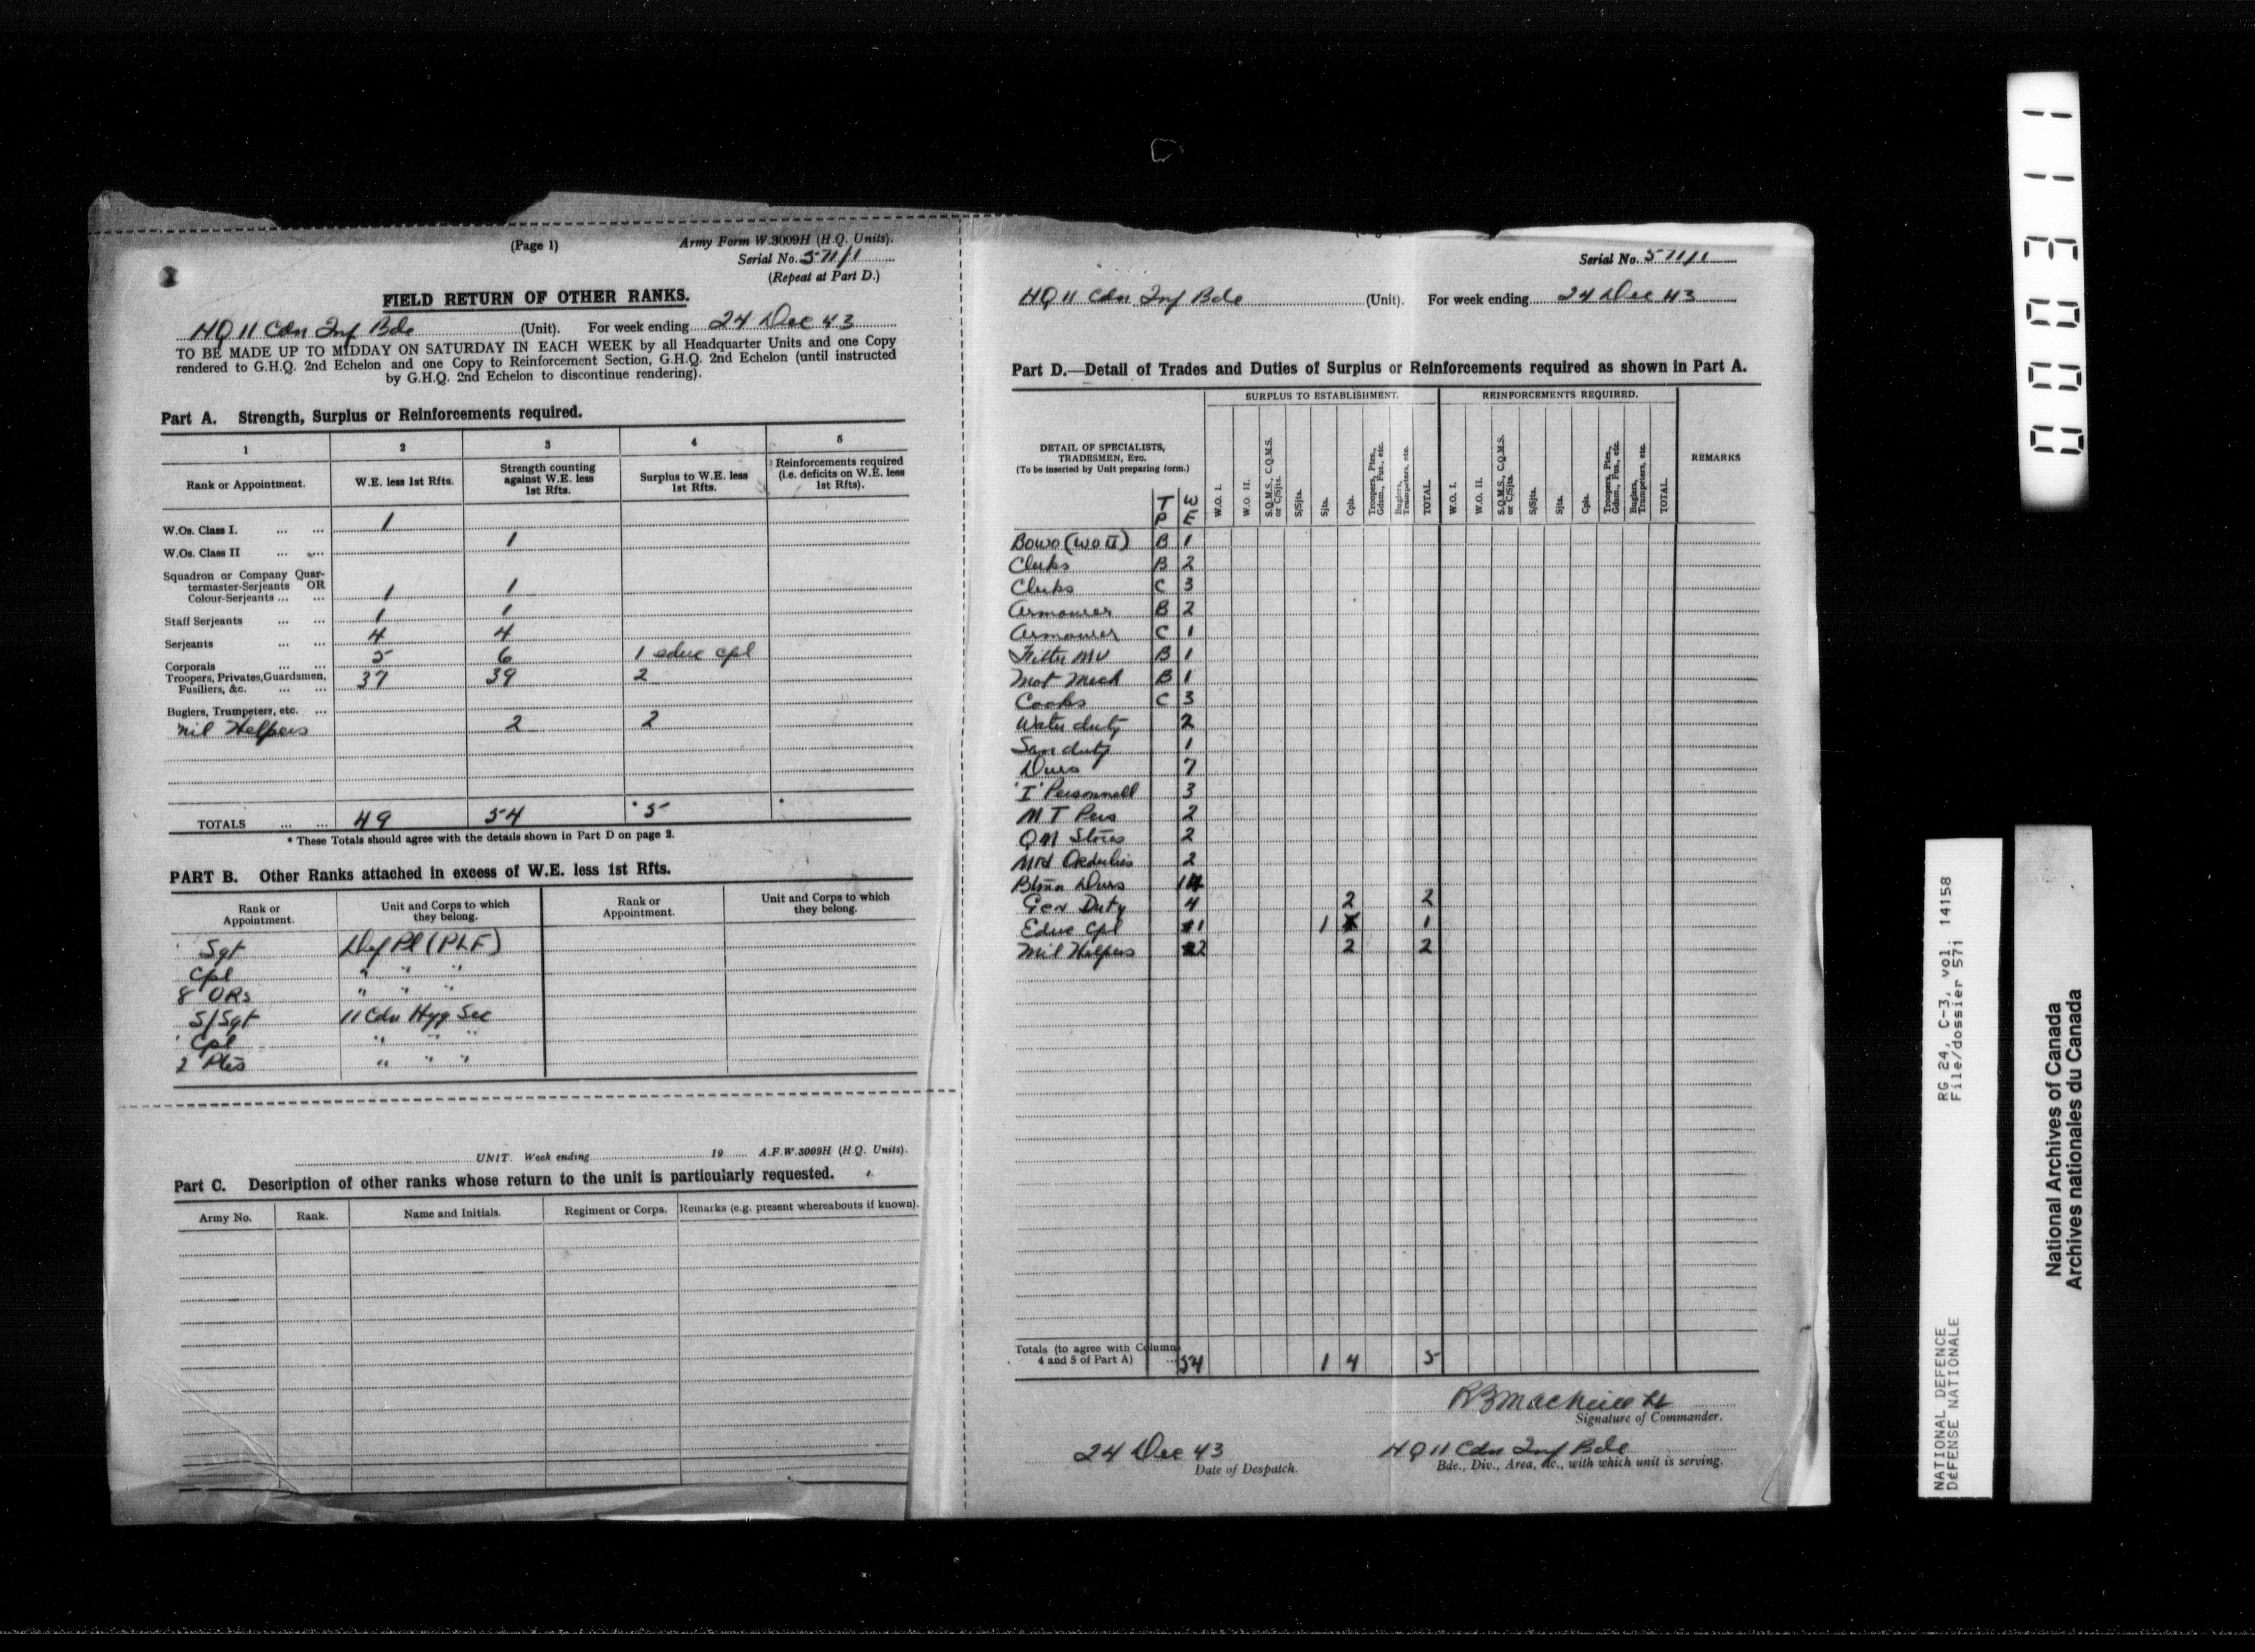 (Page 1)
Army Form W.3009H (H.Q. Units).
Serial No. 571/1
(Repeat at Part D.)
FIELD RETURN OF OTHER RANKS.
HQ 11 Cdn Inf Bde (Unit). For week ending 24 Dec 43
TO BE MADE UP TO MIDDAY ON SATURDAY IN EACH WEEK by all Headquarter Units and one Copy
rendered to G.H.Q. 2nd Echelon and one Copy to Reinforcement Section, G.H.Q. 2nd Echelon (until instructed
by G.H.Q. 2nd Echelon to discontinue rendering).
Part A. Strength, Surplus or Reinforcements required.
1 2 3 4 5
Rank or Appointment. W.E. less 1st Rfts. Strength counting against W.E. less 1st Rfts. Surplus to W.E. less 1st Rfts. Reinforcements required (i.e. deficits on W.E. less 1st Rfts).
W.Os. Class I. ... ... 1
W.Os. Class II ... ... 1
Squadron or Company Quar-
termaster-Serjeants OR
Colour-Serjeants ... ... 1 1
Staff Serjeants ... ... 1 1
Serjeants ... ... 4 4
Corporals ... ... 5 6 1 educ cpl
Troopers, Privates, Guardsmen,
Fusiliers, &c. ... ... 37 39 2
Buglers, Trumpeters, etc. ...
Mil Helpers 2 2
TOTALS ... ... 49 54 * 5 *
* These Totals should agree with the details shown in Part D on page 2.
PART B. Other Ranks attached in excess of W.E. less 1st Rfts.
Rank or Appointment. Unit and Corps to which they belong. Rank or Appointment. Unit and Corps to which they belong.
Sgt Def Pl (PLF)
Cpl " " "
8 ORs " " "
S/Sgt 11 Cdn Hyg Sec
Cpl " " "
2 Ptes " " "
UNIT. Week ending 19 A.F.W.3009H (H.Q. Units).
Part C. Description of other ranks whose return to the unit is particularly requested.
Army No. Rank. Name and Initials. Regiment or Corps. Remarks (e.g. present whereabouts if known).
Serial No. 571/1
HQ 11 Cdn Inf Bde (Unit). For week ending 24 Dec 43
Part D.—Detail of Trades and Duties of Surplus or Reinforcements required as shown in Part A.
SURPLUS TO ESTABLISHMENT. REINFORCEMENTS REQUIRED.
DETAIL OF SPECIALISTS,
TRADESMEN, Etc.
(To be inserted by Unit preparing form.)
TP WE W.O. I. W.O. II. S.Q.M.S., C.Q.M.S. or C/Sjts. S/Sjts. Sjts. Cpls. Troopers, Ptes., Gdsm., Fus., etc. Buglers, Trumpeters, etc. TOTAL W.O. I. W.O. II. S.Q.M.S., C.Q.M.S. or C/Sjts. S/Sjts. Sjts. Cpls. Troopers, Ptes., Gdsm., Fus., etc. Buglers, Trumpeters, etc. TOTAL REMARKS
Bowo (WO II) B 1
Clerks B 2
Clerks C 3
Armourer B 2
Armourer C 1
Fitter MV B 1
Mot Mech B 1
Cooks C 3
Water duty 2
San duty 1
Dvrs 7
'I' Personnell 3
M T Pers 2
QM Stores 2
Med Orderlies 2
Btmn Dvrs 14
Gen Duty 4 2 2
Educ Cpl 1 1 1
Mil Helpers 2 2 2
Totals (to agree with Column
4 and 5 of Part A) ... 54 1 4 5
RB MacNeill Lt
Signature of Commander.
24 Dec 43
Date of Despatch.
HQ 11 Cdn Inf Bde
Bde., Div., Area, &c., with which unit is serving.
000311
RG 24, C-3, vol. 14158
File/dossier 571
NATIONAL DEFENCE
DÉFENSE NATIONALE
National Archives of Canada
Archives nationales du Canada